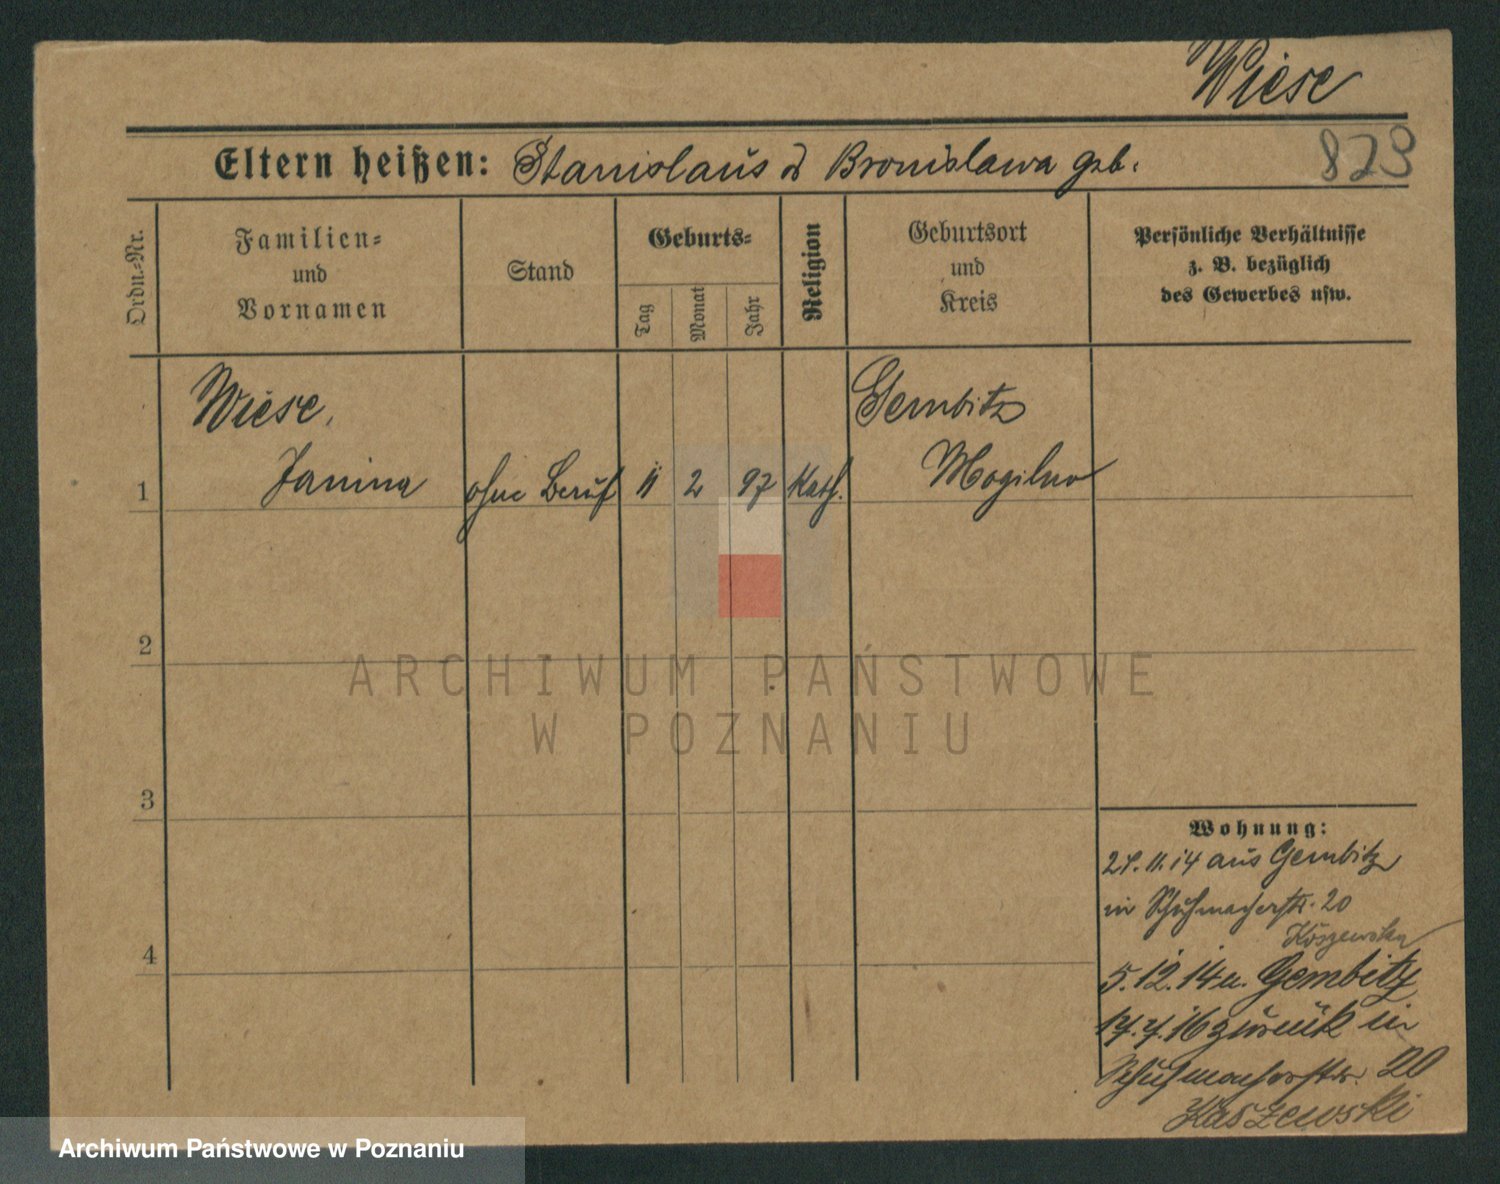 Wiese
Eltern heißen: Stanislaus & Bronislawa geb.
823
Ordn.-Nr.
Familien-
und
Vornamen
Stand
Geburts-
Tag
Monat
Jahr
Religion
Geburtsort
und
Kreis
Persönliche Verhältnisse
z. B. bezüglich
des Gewerbes usw.
Wiese,
Gembitz
1 Janina ohne Beruf 11 2 97 Kath. Mogilno
2
3
4
ARCHIWUM PAŃSTWOWE
W POZNANIU
Wohnung:
11.14 aus Gembitz
in Schuhmacherstr. 20
5.12.14 n. Gembitz
17.7.16 zurück in
Schuhmacherstr. 20
Kaszewski
Archiwum Państwowe w Poznaniu